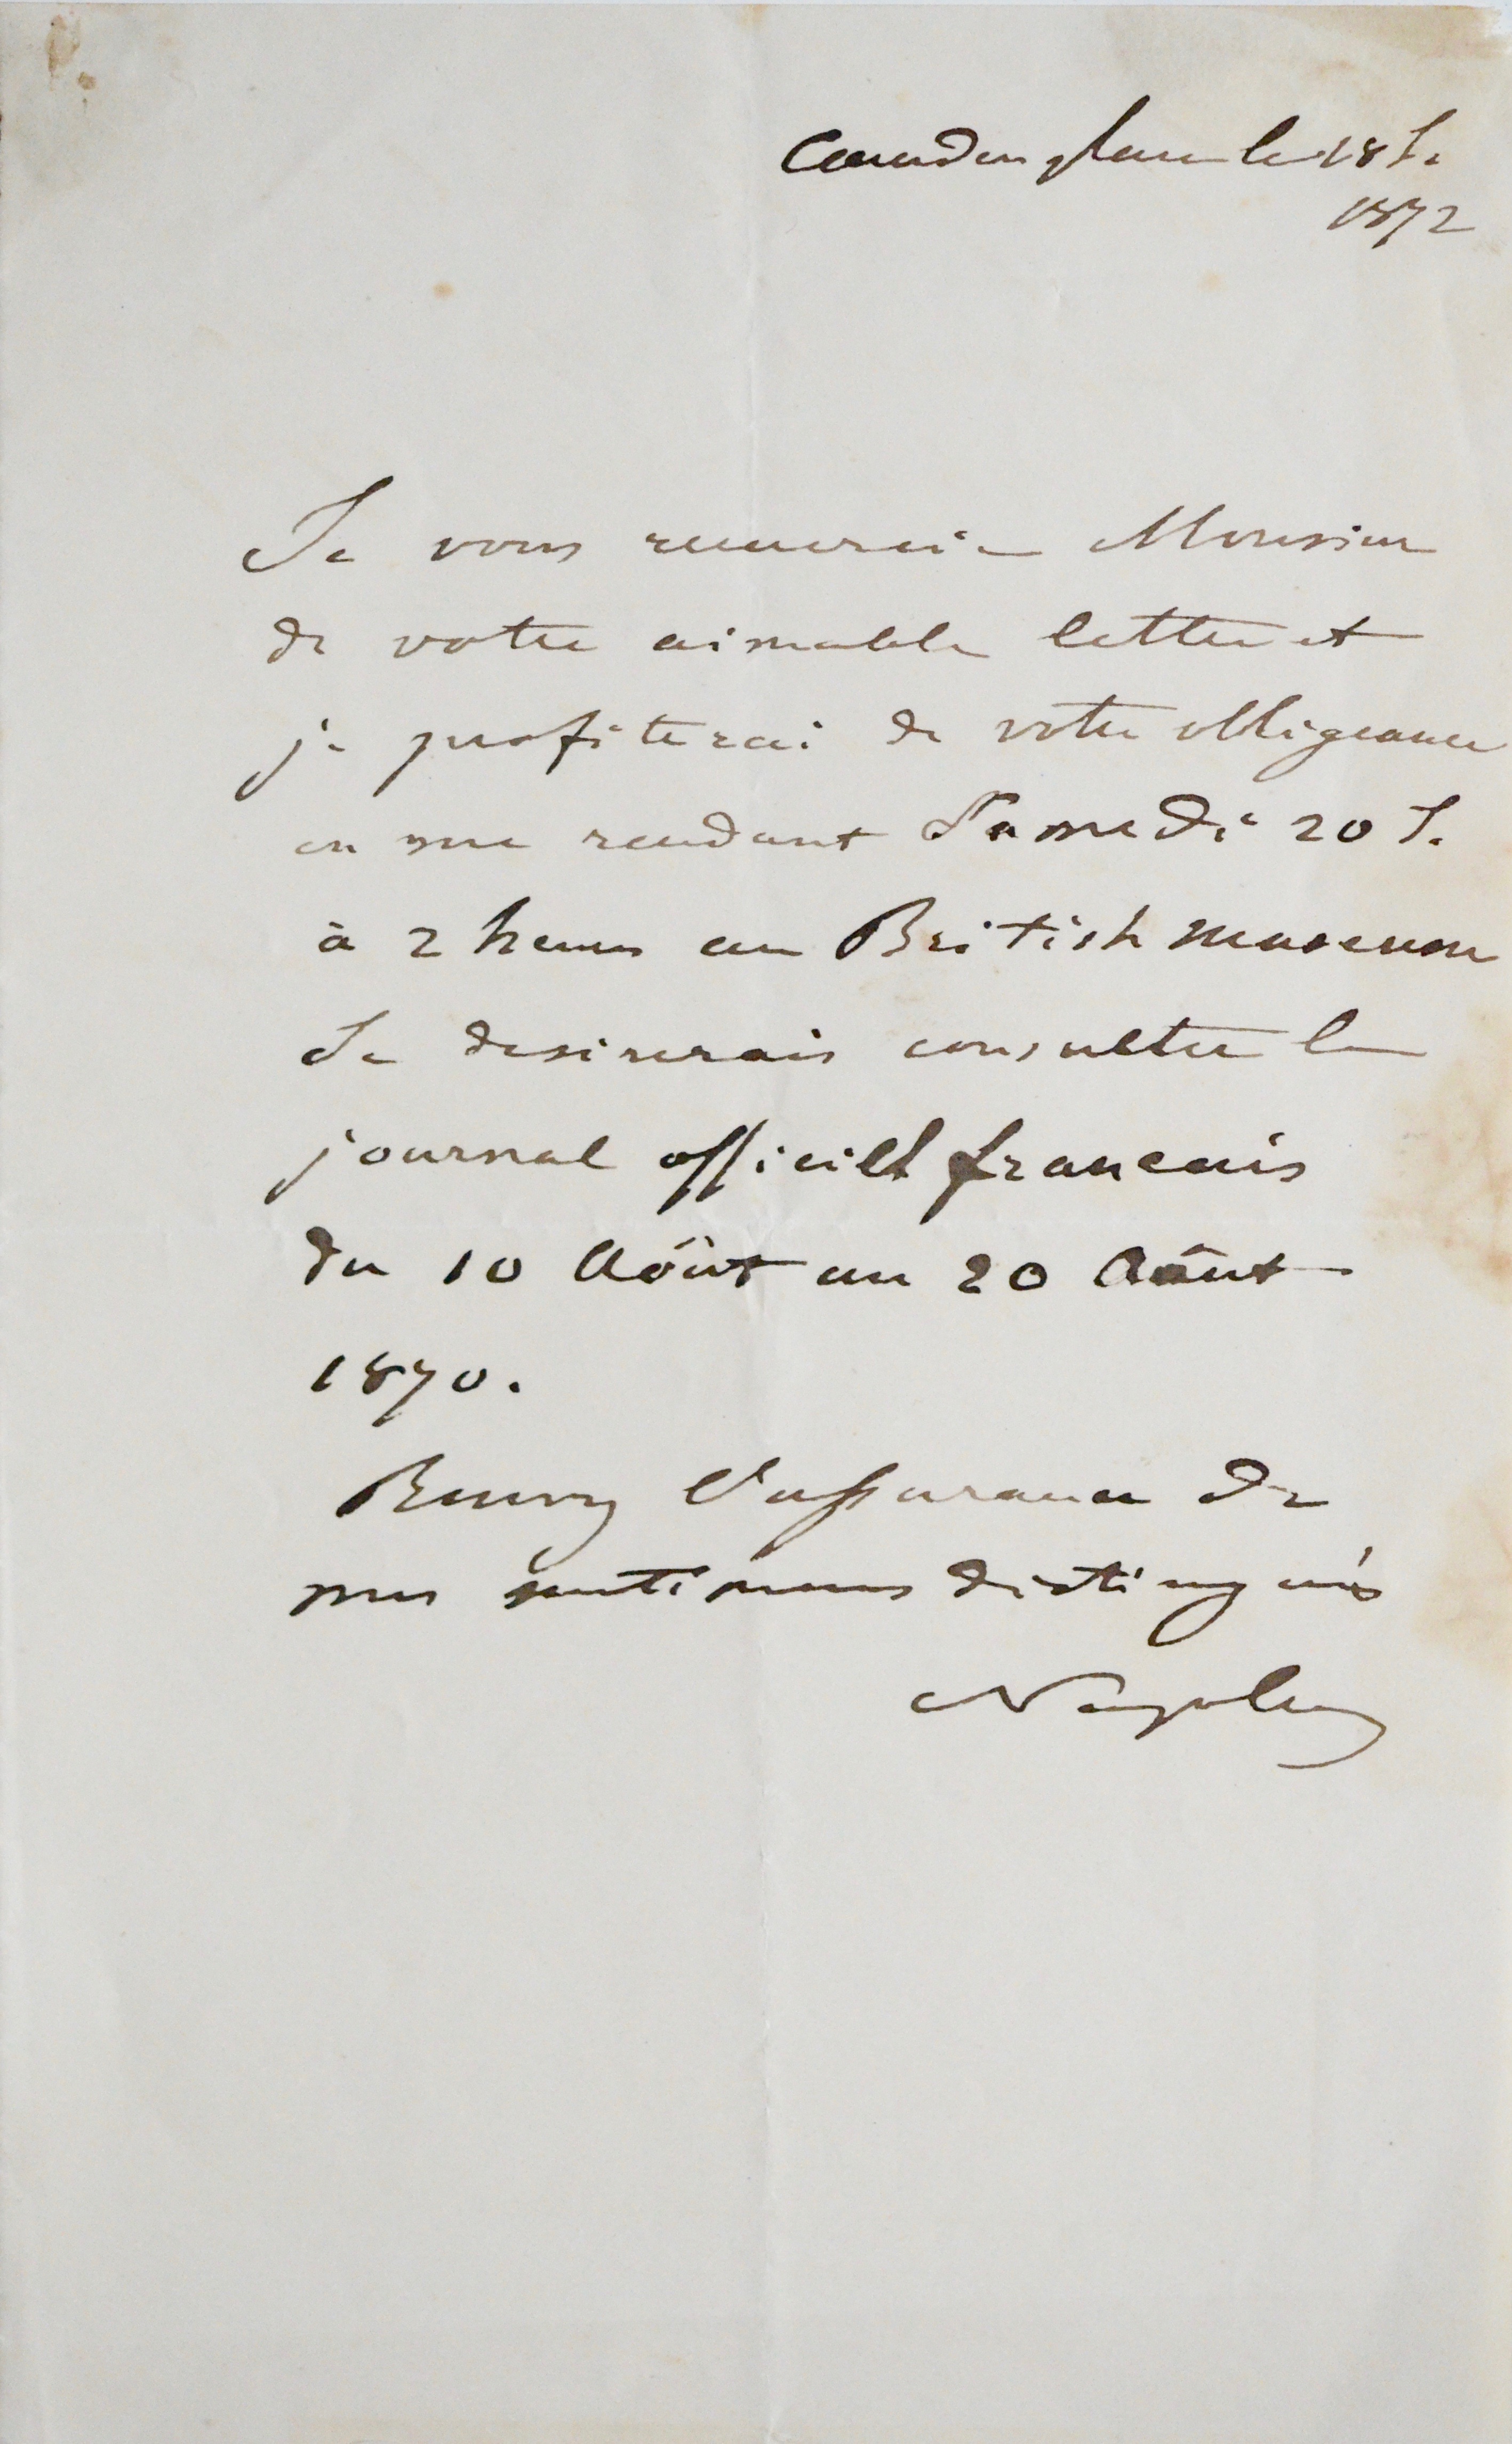 Camden place le 18 J.
1872
Je vous remercie Monsieur
de votre aimable lettre et
je profiterai de votre obligeance
en me rendant Samedi 20 J.
à 2 heures au British museum
Je desirerais consulter le
journal officielt francais
du 10 Aôut au 20 Aôut
1870.
Recevez l'assurance de
mes sentimens distingués
Napoléon